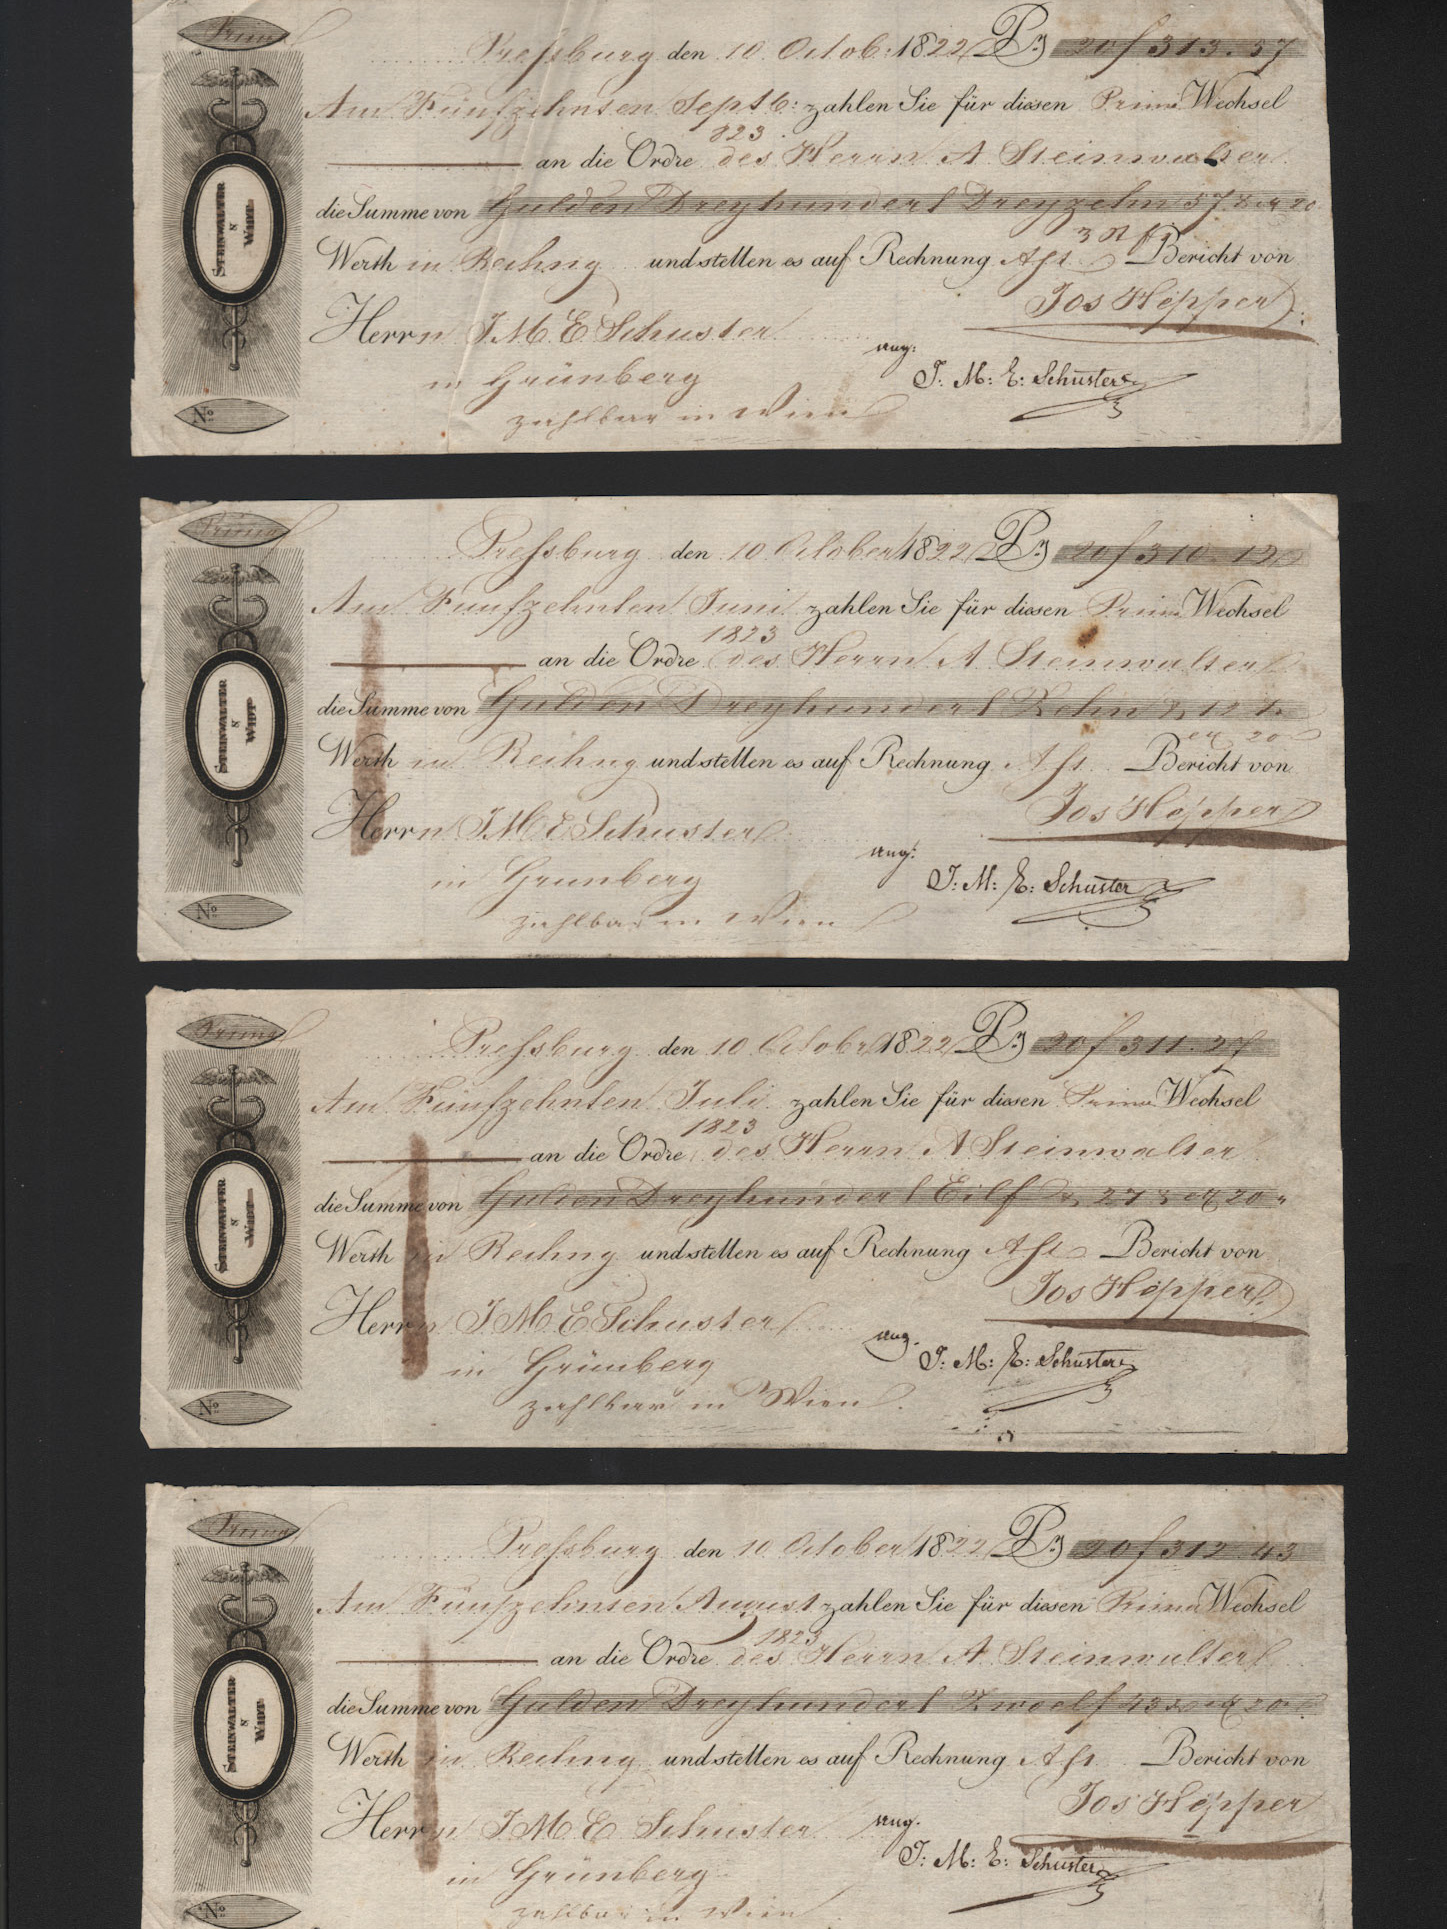 Prima
Pressburg den 10 Octob: 1822 Pr 20 f 313.57
Am Fünfzehnten Septb: zahlen Sie für diesen Prima Wechsel
823
an die Ordre des Herrn A Steinwalter
die Summe von Gulden Dreyhundert Dreyzehn 57 X er 20
Werth in Rechng und stellen es auf Rechnung Bericht von
Jos Hepper
Herrn J M E Schuster
ang:
J: M: E: Schuster
in Grünberg
zahlbar in Wien
STEINWALTER & WIDT
No
Prima
Pressburg den 10 October 1822 Pr 20 f 310.12
Am Fünfzehnten Juni zahlen Sie für diesen Prima Wechsel
1823
an die Ordre des Herrn A Steinwalter
die Summe von Gulden Dreyhundert Zehn & 12 X
er 20
Werth in Rechng und stellen es auf Rechnung Bericht von
Jos Hepper
Herrn J M E Schuster
ang:
J: M: E: Schuster
in Grunberg
zahlbar in Wien
STEINWALTER & WIDT
No
Prima
Pressburg den 10 Octobr 1822 Pr 20 f 311.27
Am Fünfzehnten Juli zahlen Sie für diesen Prima Wechsel
1823
an die Ordre des Herrn A Steinwalter
die Summe von Gulden Dreyhundert Eilf & 27 X er 20
Werth in Rechng und stellen es auf Rechnung Bericht von
Jos Hepper
Herrn J M E Schuster
ang.
J: M: E: Schuster
in Grünberg
zahlbar in Wien
STEINWALTER & WIDT
No
Prima
Pressburg den 10 October 1822 Pr 20 f 312.43
Am Fünfzehnten August zahlen Sie für diesen Prima Wechsel
1823
an die Ordre des Herrn A Steinwalter
die Summe von Gulden Dreyhundert Zwoelf 43 X er 20
Werth in Rechng und stellen es auf Rechnung Bericht von
Jos Hepper
Herrn J M E Schuster
ang.
J: M: E: Schuster
in Grünberg
zahlbar in Wien
STEINWALTER & WIDT
No